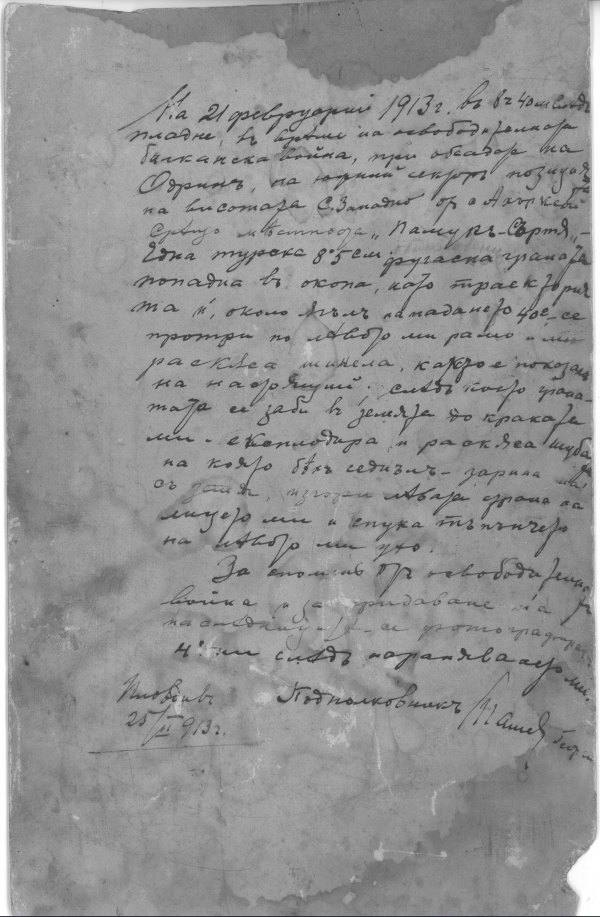 На 21 февруарий 1913 г. въ 8 ч 40 м следъ
пладне, въ време на освободителната
балканска война, при обсадата на
Одринъ, на южний секторъ позицията
на висотата С. Западно отъ с.
срещо местностьта „Памукъ-Сърта„ -
Една турска 8·5 см. фугасна граната
попадна въ окопа, като траекторията
та ѝ, около ъгълъ на падането 40°, се
протри по лѣвото ми рамо и ми
раскъса шинела, както е показано
на настоящий, следъ което грана-
тата се заби в земята до краката
ми - експлодира и раскъса шуба
на която бѣхъ седналъ - зарина ма
съ земя, изгори лѣвата страна на
лицето ми и спука тъпънчето
на лѣвото ми ухо.
За споменъ отъ освободителната
война и за предаване на
наследницитѣ се фотографирахъ
4 дни следъ нараняването ми.
Пловдивъ
25/II 913 г.
Подполковникъ